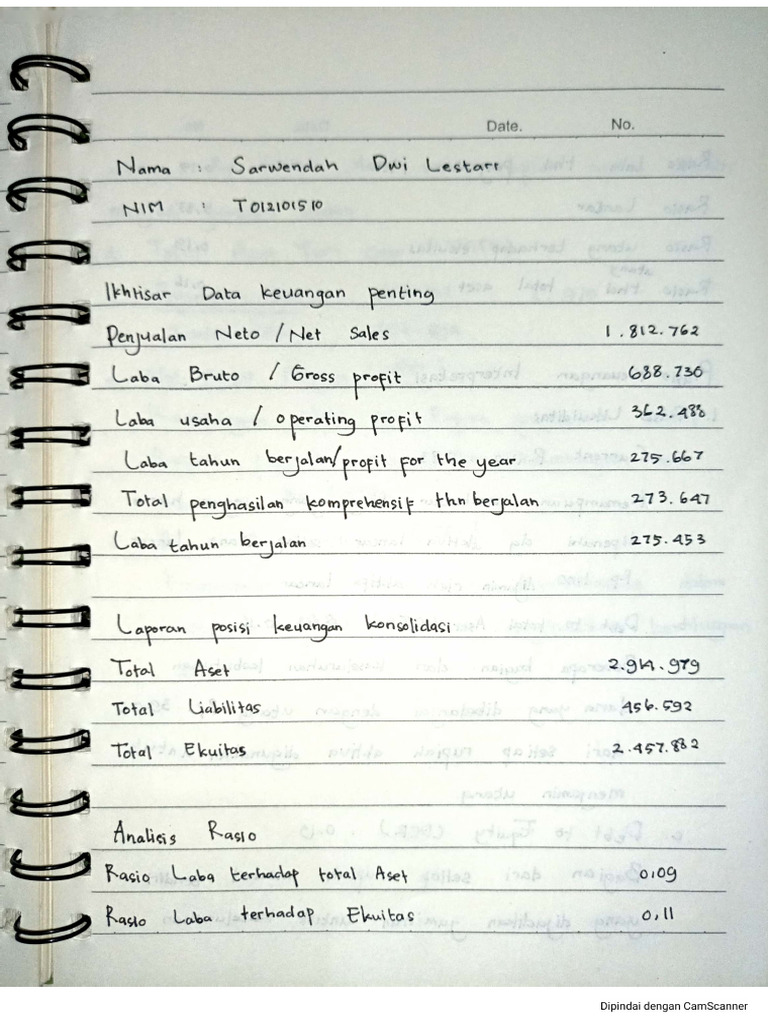 Date. No.
Nama : Sarwendah Dwi Lestari
NIM : T012101510
Ikhtisar Data keuangan penting
Penjualan Neto / Net Sales 1.812.762
Laba Bruto / Gross profit 688.730
Laba usaha / operating profit 362.488
Laba tahun berjalan/profit for the year 275.667
Total penghasilan komprehensif thn berjalan 273.647
Laba tahun berjalan 275.453
Laporan posisi keuangan konsolidasi
Total Aset 2.914.979
Total Liabilitas 456.592
Total Ekuitas 2.457.882
Analisis Rasio
Rasio Laba terhadap total Aset 0,09
Rasio Laba terhadap Ekuitas 0,11
Dipindai dengan CamScanner